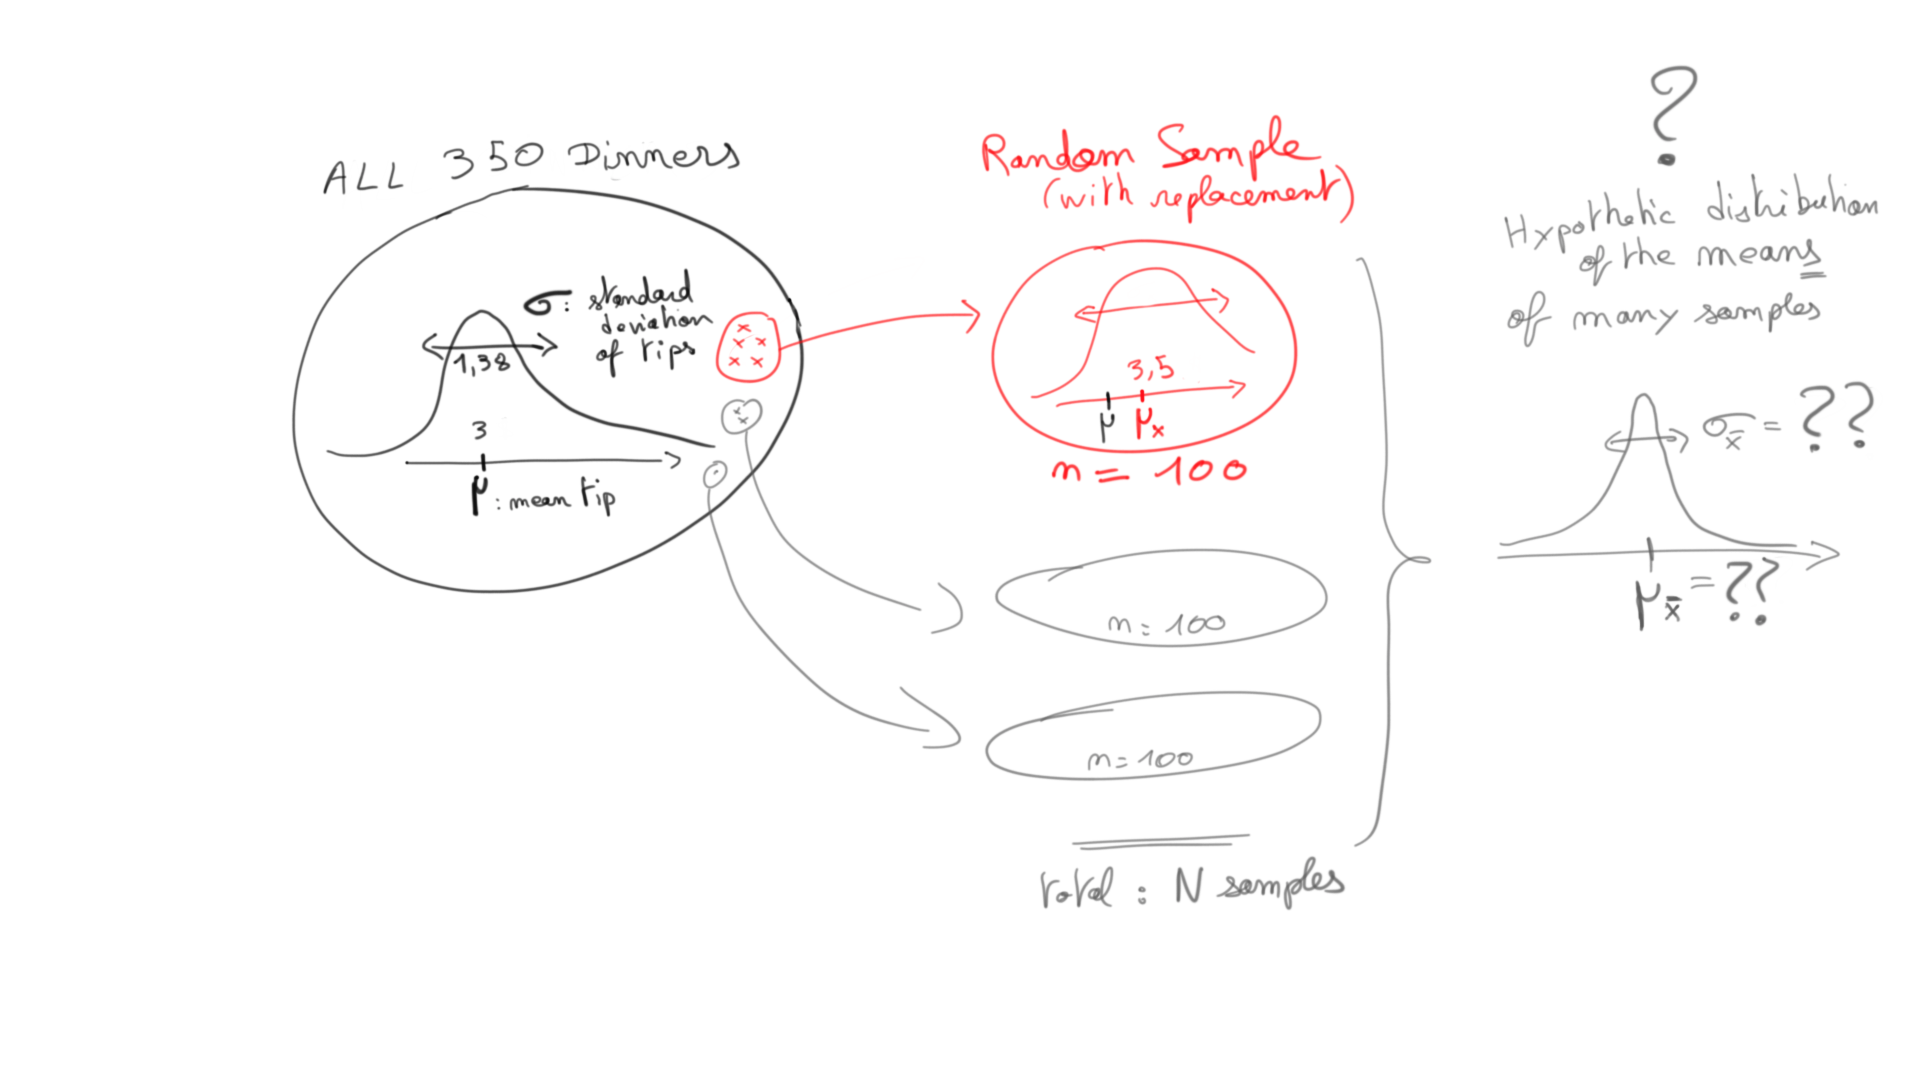 ALL 350 Dinners
σ: standard
deviation
of tips
1,38
3
μ: mean tip
Random Sample
(with replacement)
3,5
μ μx
n = 100
n = 100
n = 100
total : N samples
?
Hypothetic distribution
of the means
of many samples
σx̄ = ??
μx̄ = ??